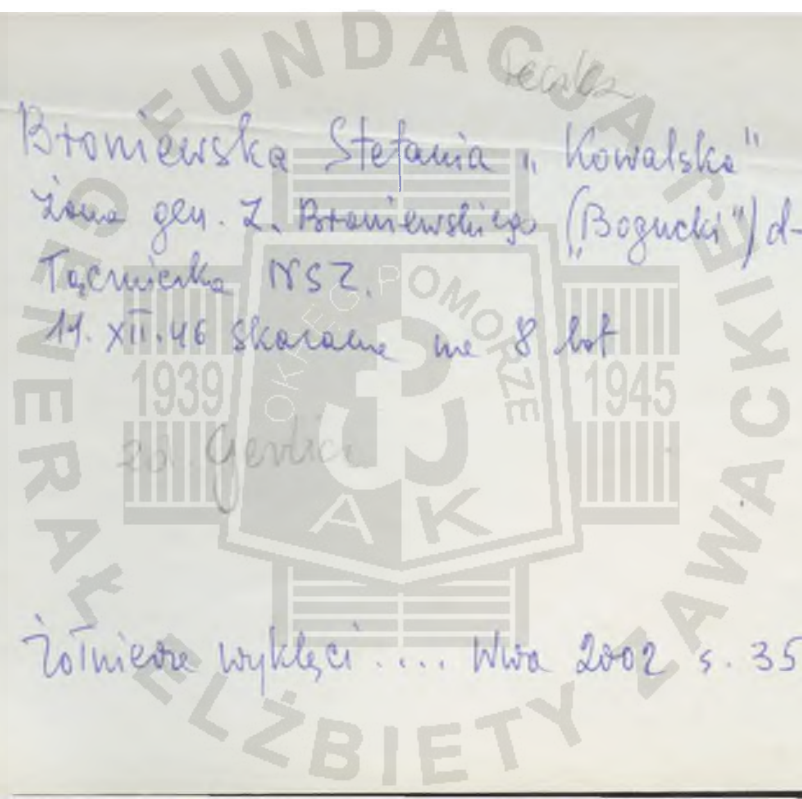 Broniewska Stefania „Kowalska"
żona gen. Z. Broniewskiego („Bogucki") d-
Łączniczka NSZ.
11. XII. 46 skazana na 8 lat
Żołnierze wyklęci .... Wwa 2002 s. 35
FUNDACJA GENERAŁ ELŻBIETY ZAWACKIEJ
OKRĘG POMORZE
1939 1945
AK